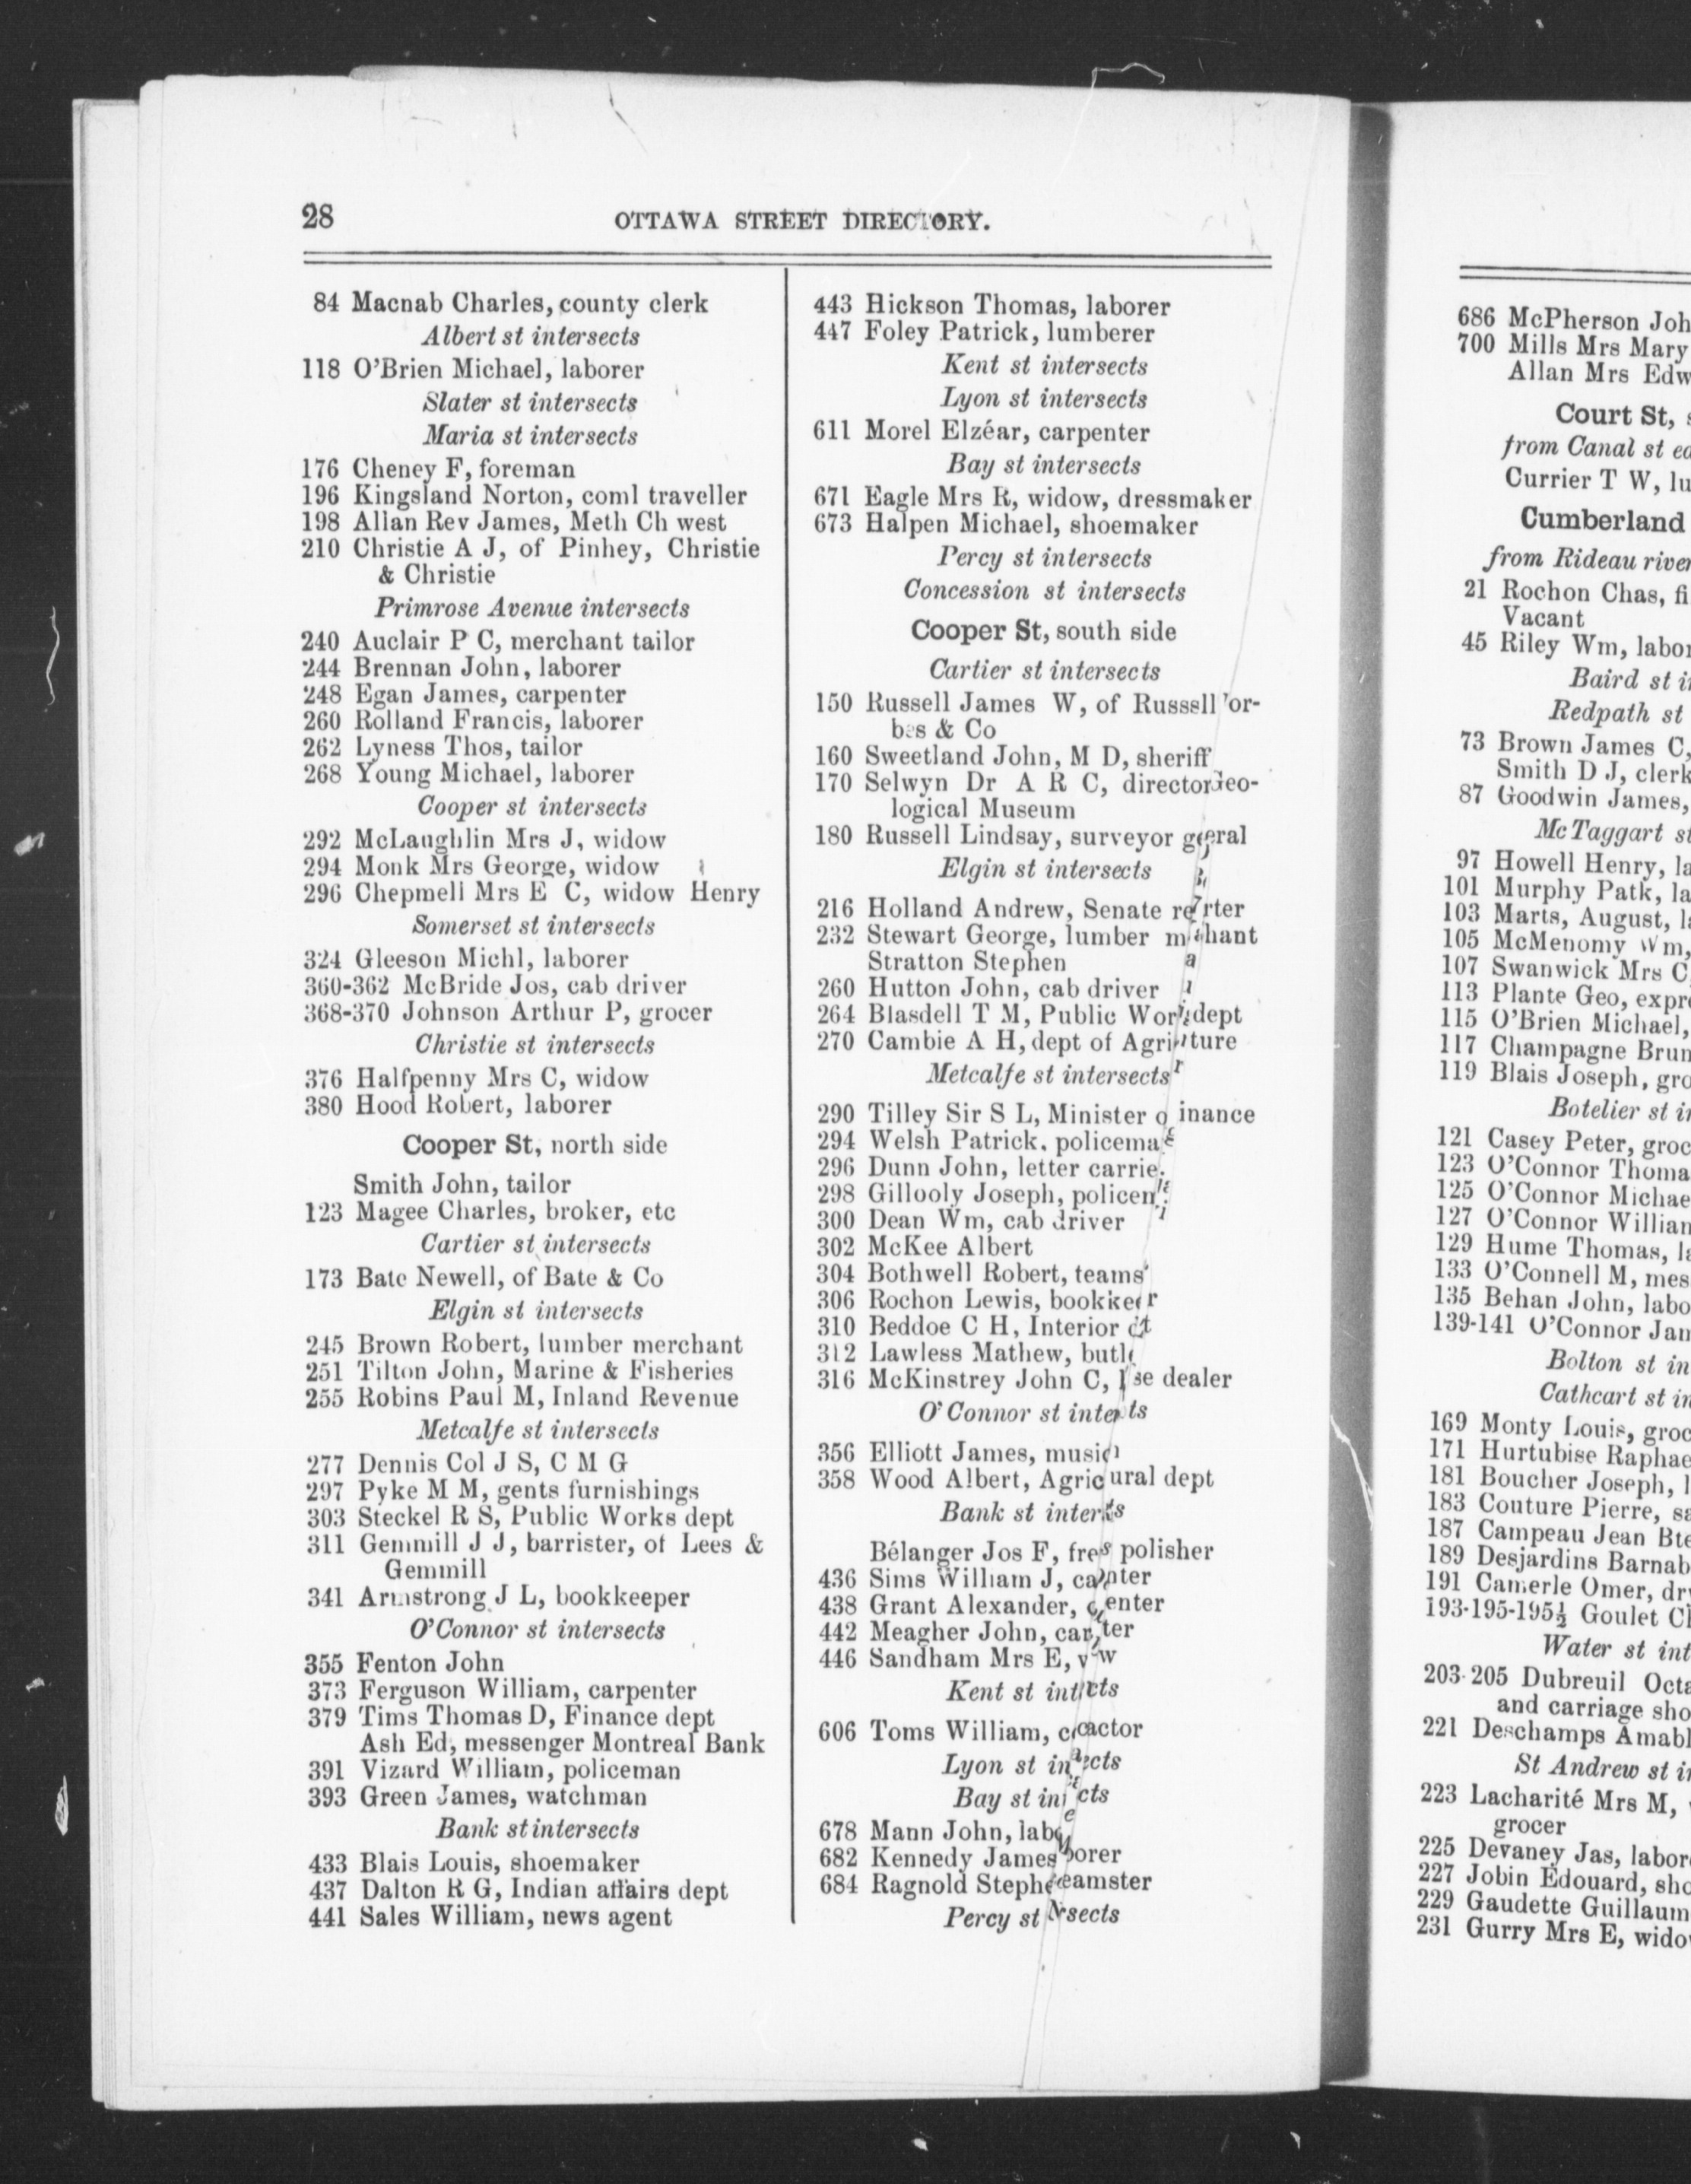 28
OTTAWA STREET DIRECTORY.
84 Macnab Charles, county clerk
Albert st intersects
118 O'Brien Michael, laborer
Slater st intersects
Maria st intersects
176 Cheney F, foreman
196 Kingsland Norton, coml traveller
198 Allan Rev James, Meth Ch west
210 Christie A J, of Pinhey, Christie
& Christie
Primrose Avenue intersects
240 Auclair P C, merchant tailor
244 Brennan John, laborer
248 Egan James, carpenter
260 Rolland Francis, laborer
262 Lyness Thos, tailor
268 Young Michael, laborer
Cooper st intersects
292 McLaughlin Mrs J, widow
294 Monk Mrs George, widow
296 Chepmell Mrs E C, widow Henry
Somerset st intersects
324 Gleeson Michl, laborer
360-362 McBride Jos, cab driver
368-370 Johnson Arthur P, grocer
Christie st intersects
376 Halfpenny Mrs C, widow
380 Hood Robert, laborer
Cooper St, north side
Smith John, tailor
123 Magee Charles, broker, etc
Cartier st intersects
173 Bate Newell, of Bate & Co
Elgin st intersects
245 Brown Robert, lumber merchant
251 Tilton John, Marine & Fisheries
255 Robins Paul M, Inland Revenue
Metcalfe st intersects
277 Dennis Col J S, C M G
297 Pyke M M, gents furnishings
303 Steckel R S, Public Works dept
311 Gemmill J J, barrister, of Lees &
Gemmill
341 Armstrong J L, bookkeeper
O'Connor st intersects
355 Fenton John
373 Ferguson William, carpenter
379 Tims Thomas D, Finance dept
Ash Ed, messenger Montreal Bank
391 Vizard William, policeman
393 Green James, watchman
Bank st intersects
433 Blais Louis, shoemaker
437 Dalton R G, Indian affairs dept
441 Sales William, news agent
443 Hickson Thomas, laborer
447 Foley Patrick, lumberer
Kent st intersects
Lyon st intersects
611 Morel Elzéar, carpenter
Bay st intersects
671 Eagle Mrs R, widow, dressmaker
673 Halpen Michael, shoemaker
Percy st intersects
Concession st intersects
Cooper St, south side
Cartier st intersects
150 Russell James W, of Russell or-
bes & Co
160 Sweetland John, M D, sheriff
170 Selwyn Dr A R C, director Geo-
logical Museum
180 Russell Lindsay, surveyor
Elgin st intersects
216 Holland Andrew, Senate
232 Stewart George, lumber
Stratton Stephen
260 Hutton John, cab driver
264 Blasdell T M, Public dept
270 Cambie A H, dept of
Metcalfe st intersects
290 Tilley Sir S L, Minister inance
294 Welsh Patrick, policema
296 Dunn John, letter carrie
298 Gillooly Joseph,
300 Dean Wm, cab driver
302 McKee Albert
304 Bothwell Robert, teams
306 Rochon Lewis,
310 Beddoe C H, Interior
312 Lawless Mathew, butl
316 McKinstrey John C, se dealer
O'Connor st
356 Elliott James,
358 Wood Albert, Agric ural dept
Bank st
Bélanger Jos F, polisher
436 Sims William J,
438 Grant Alexander, enter
442 Meagher John,
446 Sandham Mrs E,
Kent st
606 Toms William,
Lyon st
Bay st
678 Mann John,
682 Kennedy James
684 Ragnold
Percy st
686 McPherson Joh
700 Mills Mrs Mary
Allan Mrs Edw
Court St,
from Canal st ea
Currier T W, lu
Cumberland
from Rideau river
21 Rochon Chas, fi
Vacant
45 Riley Wm, labor
Baird st i
Redpath st
73 Brown James C,
Smith D J, clerk
87 Goodwin James,
McTaggart st
97 Howell Henry, la
101 Murphy Patk, la
103 Marts, August, la
105 McMenomy Wm,
107 Swanwick Mrs C
113 Plante Geo, expre
115 O'Brien Michael,
117 Champagne Brun
119 Blais Joseph, gro
Botelier st i
121 Casey Peter, groc
123 O'Connor Thoma
125 O'Connor Michae
127 O'Connor William
129 Hume Thomas, la
133 O'Connell M, mes
135 Behan John, labo
139-141 O'Connor Jam
Bolton st in
Cathcart st in
169 Monty Louis, groc
171 Hurtubise Raphae
181 Boucher Joseph, l
183 Couture Pierre, sa
187 Campeau Jean Bte
189 Desjardins Barnab
191 Camerle Omer, dr
193-195-195½ Goulet Cl
Water st int
203-205 Dubreuil Octa
and carriage sho
221 Deschamps Amabl
St Andrew st i
223 Lacharité Mrs M,
grocer
225 Devaney Jas, labor
227 Jobin Edouard, sho
229 Gaudette Guillaum
231 Gurry Mrs E, wido